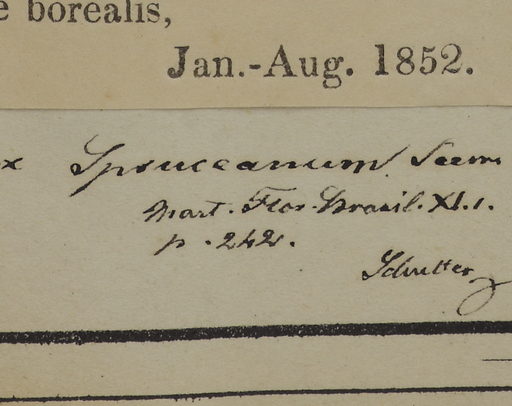 e borealis,
Jan.-Aug. 1852.
x Spruceanum Seem
Mart. Flor. Brasil. XI.1.
p. 242.